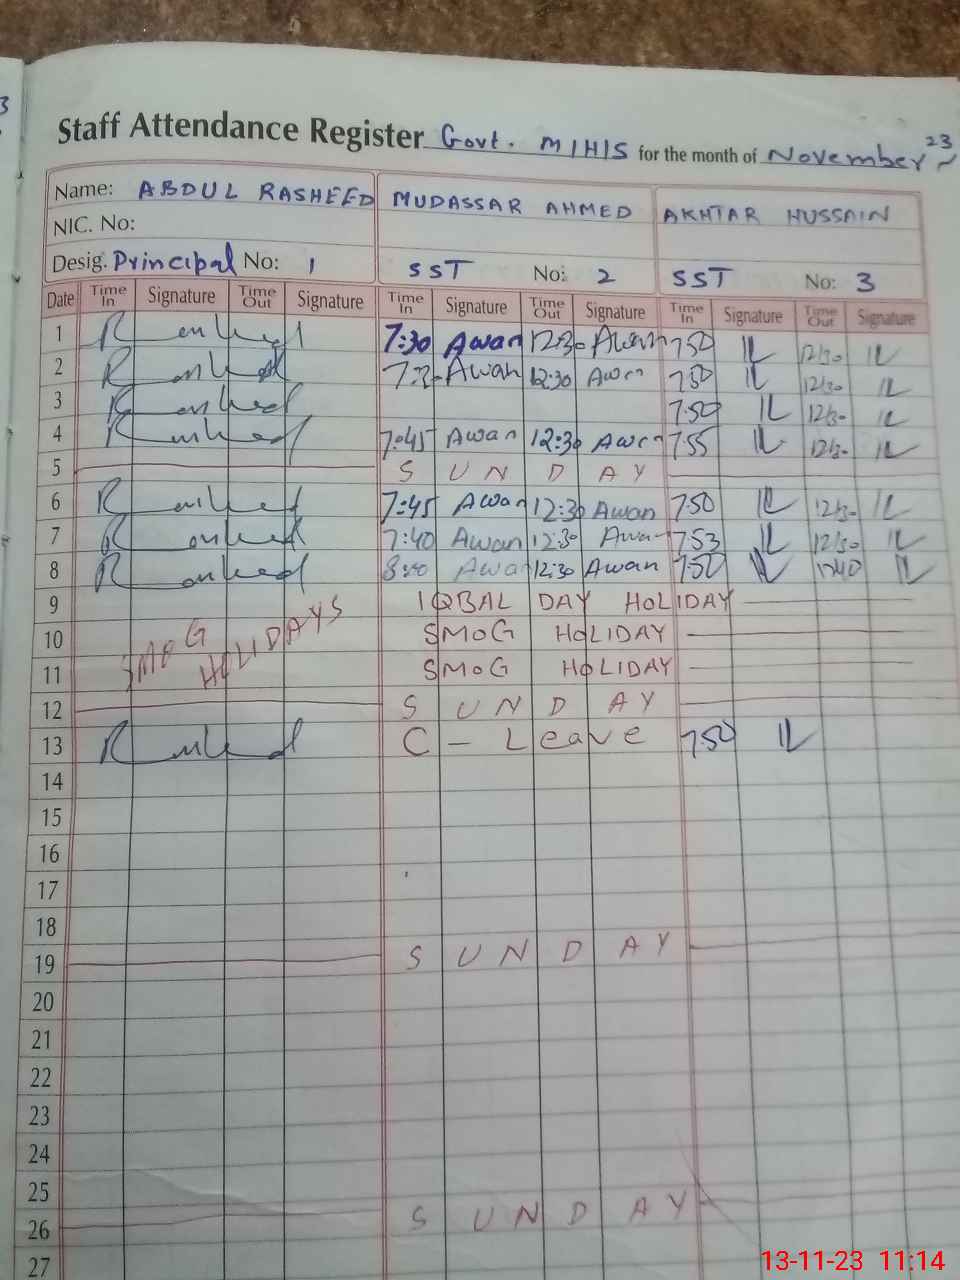 Staff Attendance Register Govt. MIHIS for the month of November 23
Name: ABDUL RASHEED MUDASSAR AHMED AKHTAR HUSSAIN
NIC. No:
Desig. Principal No: 1 SST No: 2 SST No: 3
Date Time In Signature Time Out Signature Time In Signature Time Out Signature Time In Signature Time Out Signature
1 7:30 Awan 12:30 Awan 7:50 12/30
2 Awan 12:30 Awan 7:50 12/30
3 7:50 12/30
4 7:45 Awan 12:30 Awan 7:55 12/30
5 SUNDAY
6 7:45 Awan 12:30 Awan 7:50 12/30
7 7:40 Awan 12:30 Awan 7:53 12/30
8 Awan 12:30 Awan 7:50
9 IQBAL DAY HOLIDAY
10 SMOG HOLIDAYS SMOG HOLIDAY
11 SMOG HOLIDAY
12 SUNDAY
13 C - Leave 7:50
14
15
16
17
18
19 SUNDAY
20
21
22
23
24
25
26 SUNDAY
27
13-11-23 11:14